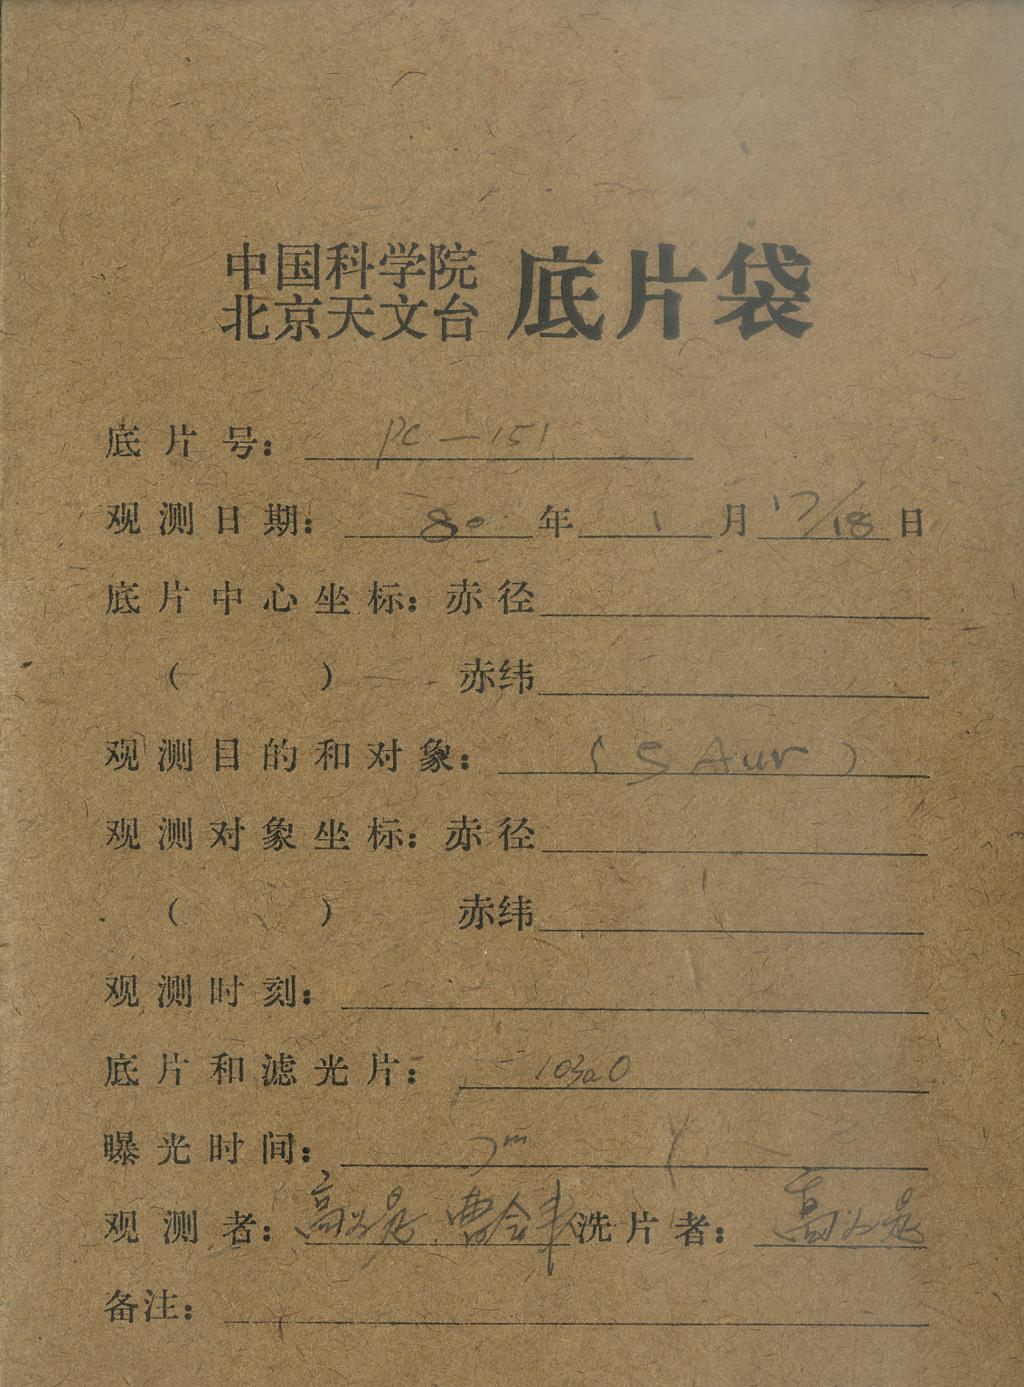 中国科学院
北京天文台 底片袋
底片号: PC-151
观测日期: 80年 1月 17/18日
底片中心坐标: 赤径
( ) 赤纬
观测目的和对象: (S Aur)
观测对象坐标: 赤径
( ) 赤纬
观测时刻:
底片和滤光片: 103aO
曝光时间:
观测者: 洗片者:
备注: